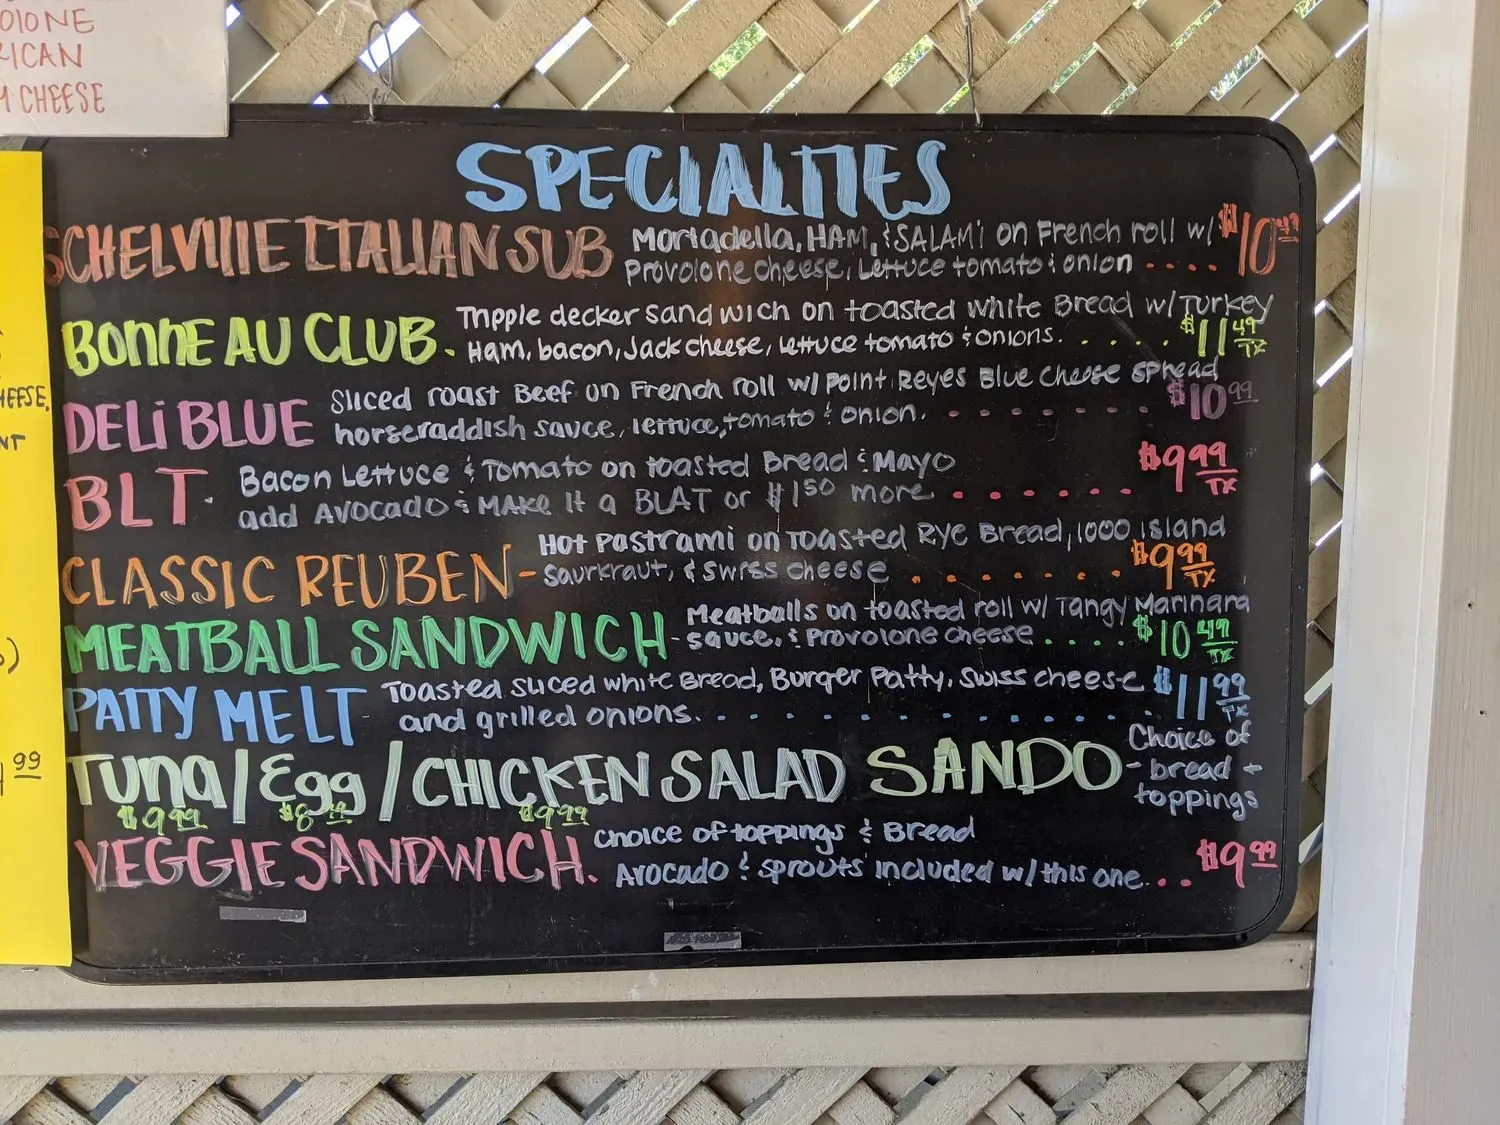 OLONE
RICAN
CHEESE
HEESE,
NT
99
SPECIALTIES
SCHELLVILLE ITALIAN SUB Mortadella, HAM, & SALAMi on French roll w/ $10.49
Provolone cheese, Lettuce tomato & onion ....
BONNEAU CLUB. Tripple decker sandwich on toasted white Bread w/ Turkey
Ham, bacon, Jack cheese, Lettuce tomato & onions. ..... $11.49 TX
DELi BLUE Sliced roast Beef on French roll w/ Point Reyes Blue Cheese spread
horseraddish sauce, lettuce, tomato & onion. ....... $10.99
BLT. Bacon Lettuce & Tomato on toasted Bread & Mayo $9.99 TX
add Avocado & MAKE it a BLAT or $1.50 more ......
CLASSIC REUBEN - Hot Pastrami on Toasted Rye Bread, 1000 island
saurkraut, & swiss cheese ....... $9.99 TX
MEATBALL SANDWICH - Meatballs on toasted roll w/ Tangy Marinara
sauce, & Provolone cheese .... $10.49 TX
PATTY MELT - Toasted sliced white Bread, Burger Patty, Swiss cheese $11.99 TX
and grilled onions. ............
TUNA / Egg / CHICKEN SALAD SANDO - Choice of
bread +
toppings
$9.99 $8.49 $9.99
VEGGIE SANDWICH. Choice of toppings & Bread
Avocado & sprouts included w/ this one... $9.99